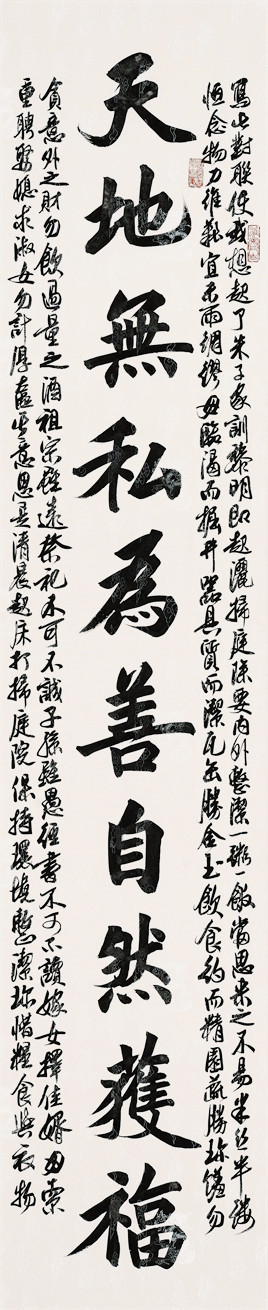 寫此對聯使我想起了朱子家訓黎明即起灑掃庭除要內外整潔一粥一飯當思來之不易半絲半縷
恒念物力維艱宜未雨綢繆毋臨渴而掘井器具質而潔瓦缶勝金玉飲食約而精園蔬勝珍饈勿
天地無私為善自然獲福
貪意外之財勿飲過量之酒祖宗雖遠祭祀不可不誠子孫雖愚經書不可不讀嫁女擇佳婿毋索
重聘娶媳求淑女勿計厚奩其意思是清晨起床打掃庭院保持環境整潔珍惜糧食與衣物